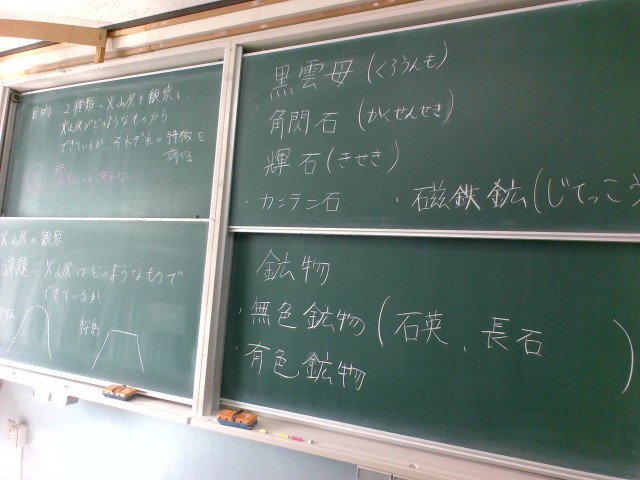 目的:2種類の火山灰を観察し、
火山灰がどのようなものから
できているか、それぞれの特徴を
調べる
雲仙は洗わない
火山灰の観察
課題:火山灰はどのようなもので
できているか
桜島
黒雲母(くろうんも)
角閃石(かくせんせき)
輝石(きせき)
・カンラン石 ・磁鉄鉱(じてっこう
鉱物
・無色鉱物(石英、長石 )
・有色鉱物